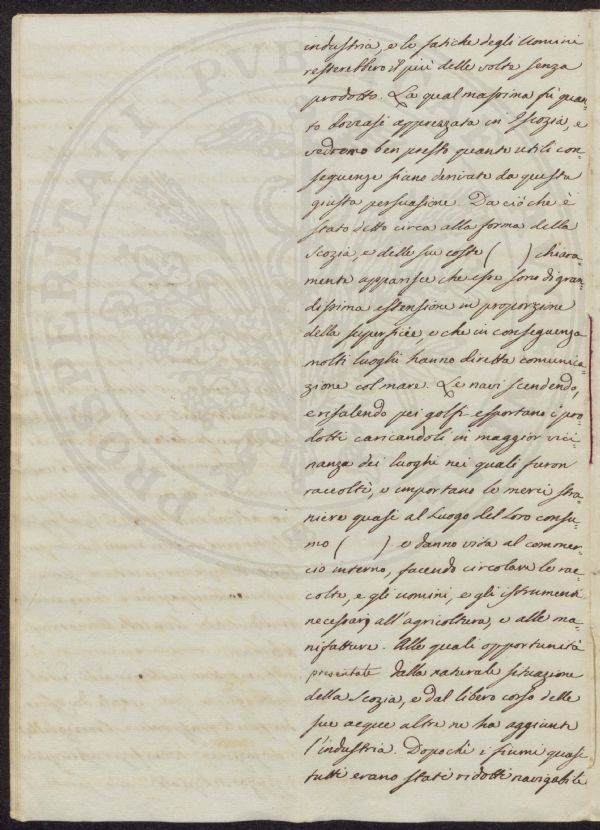 industria, e le fatiche degli Uomini
resterebbero il più delle volte senza
prodotto. La qual massima fù quan-
to doveasi apprezzata in Iscozia, e
vedremo ben presto quante utili con-
seguenze siano derivate da questa
giusta persuasione. Da ciò che è
stato detto circa alla forma della
Scozia, e delle sue coste ( ) chiara-
mente apparisce che esse sono di gran-
dissima estensione in proporzione
della superficie e che in conseguenza
molti luoghi hanno diretta comunica-
zione col mare. Le navi scendendo,
e risalendo pei golfi esportano i pro-
dotti caricandoli in maggior vici-
nanza dei luoghi nei quali furon
raccolti, e importano le merci stra-
niere quasi al Luogo del Loro consu-
mo ( ) e danno vita al commer-
cio interno, facendo circolare le rac-
colte, e gli uomini, e gli istrumenti
necessarj all'agricoltura, e alle ma-
nifatture. Alle quali opportunità
presentate dalla naturale situazione
della Scozia, e dal libero corso delle
sue acque altre ne ha aggiunte
l'industria. Dopochè i fiumi quasi
tutti erano stati ridotti navigabili
PROSPERITATI PUB